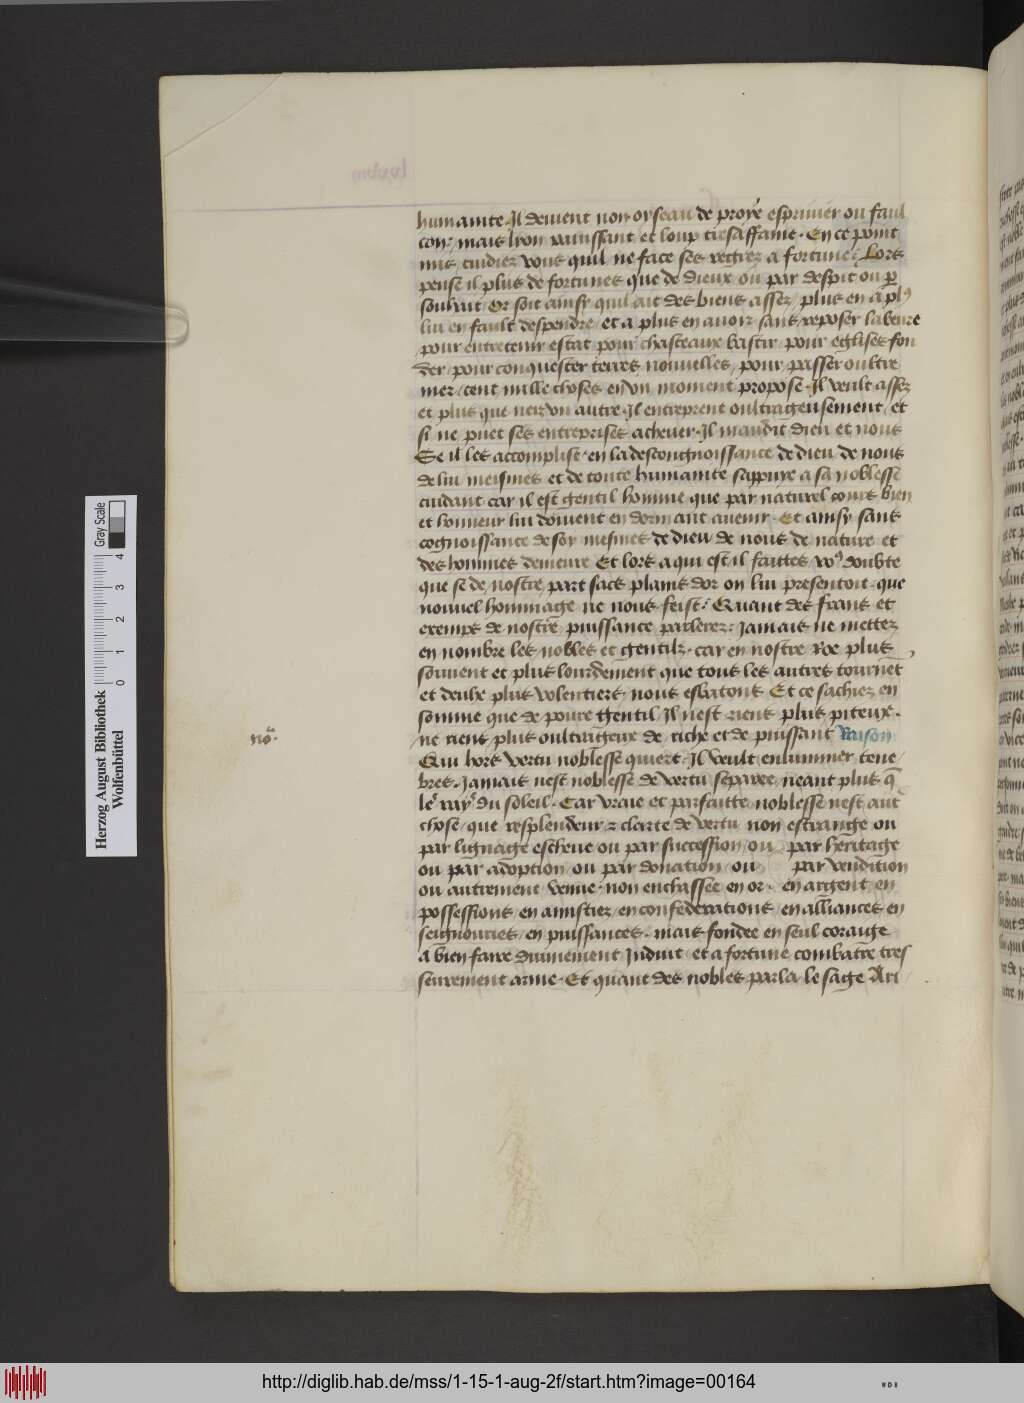 humainte. Il deuient non oyseau de proye espriuier ou faul
con, mais lyon rauissant et loup tresaffame. En ce point
mis, cuidiez vous quil ne face ses regrez a fortune. Lors
pense il plus de fortunes que de dieux ou par despit ou p̄
souhait. Or soit ainsy quil ait des biens assez, plus en a plꝰ
lui en fault despendre, et a plus en auoir sans reposer labeure
pour entretenir estat pour chasteaux bastir, pour eglises fon
der, pour conquester terres nouuelles, pour passer oultre
mer, cent mille choses en vn moment propose. Il veult assez
et plus que nen vn autre. Il entreprent oultrageusement, et
si ne puet ses entreprises acheuer. Il maudit dieu et nous
Se il les accomplist, en la descongnoissance de dieu, de nous
de lui meismes et de toute humainte sappuye a sa noblesse
cuidant car il est gentil homme que par naturel cours bien
et honneur lui doiuent en dormant auenir. Et ainsy sans
cognoissance de soy mesmes de dieu de nous de nature et
des hommes demeure Et lors a qui est il faittes vꝰ doubte
que se de nostre part sacs plains dor on lui presentoit, que
nouuel hommage ne nous feist. Quant des frans et
exemps de nostre puissance parlerez: Jamais ne mettez
en nombre les nobles et gentilz. car en nostre Roe plus
souuent et plus lourdement que tous les autres tournēt
et deulx plus volentiers nous esbatons Et ce sachiez en
somme que de poure gentil, Il nest riens plus piteux.
ne riens plus oultrageux de riche et de puissant Raison
nō.
Qui hors vertu noblesse quiert. Il veult enluminer tene
bres. Jamais nest noblesse de vertu separee, neant plus q̄
le ray du soleil. Car vraie et parfaitte noblesse nest aut
chose, que resplendeur & clarte de vertu non estrange ou
par lignage escheue ou par succession, ou par heritage
ou par adoption ou par donation, ou par vendition
ou autrement venue. non enchassee en or. en argent, en
possessions en amistiez, en confederations, en alliances en
seignouries, en puissances. mais fondee en seul corage
a bien faire diuinement Induit, et a fortune combatre tres
seurement arme. Et quant des nobles parla le sage Ari
Herzog August Bibliothek
Wolfenbüttel
0 1 2 3 4
Gray Scale
http://diglib.hab.de/mss/1-15-1-aug-2f/start.htm?image=00164